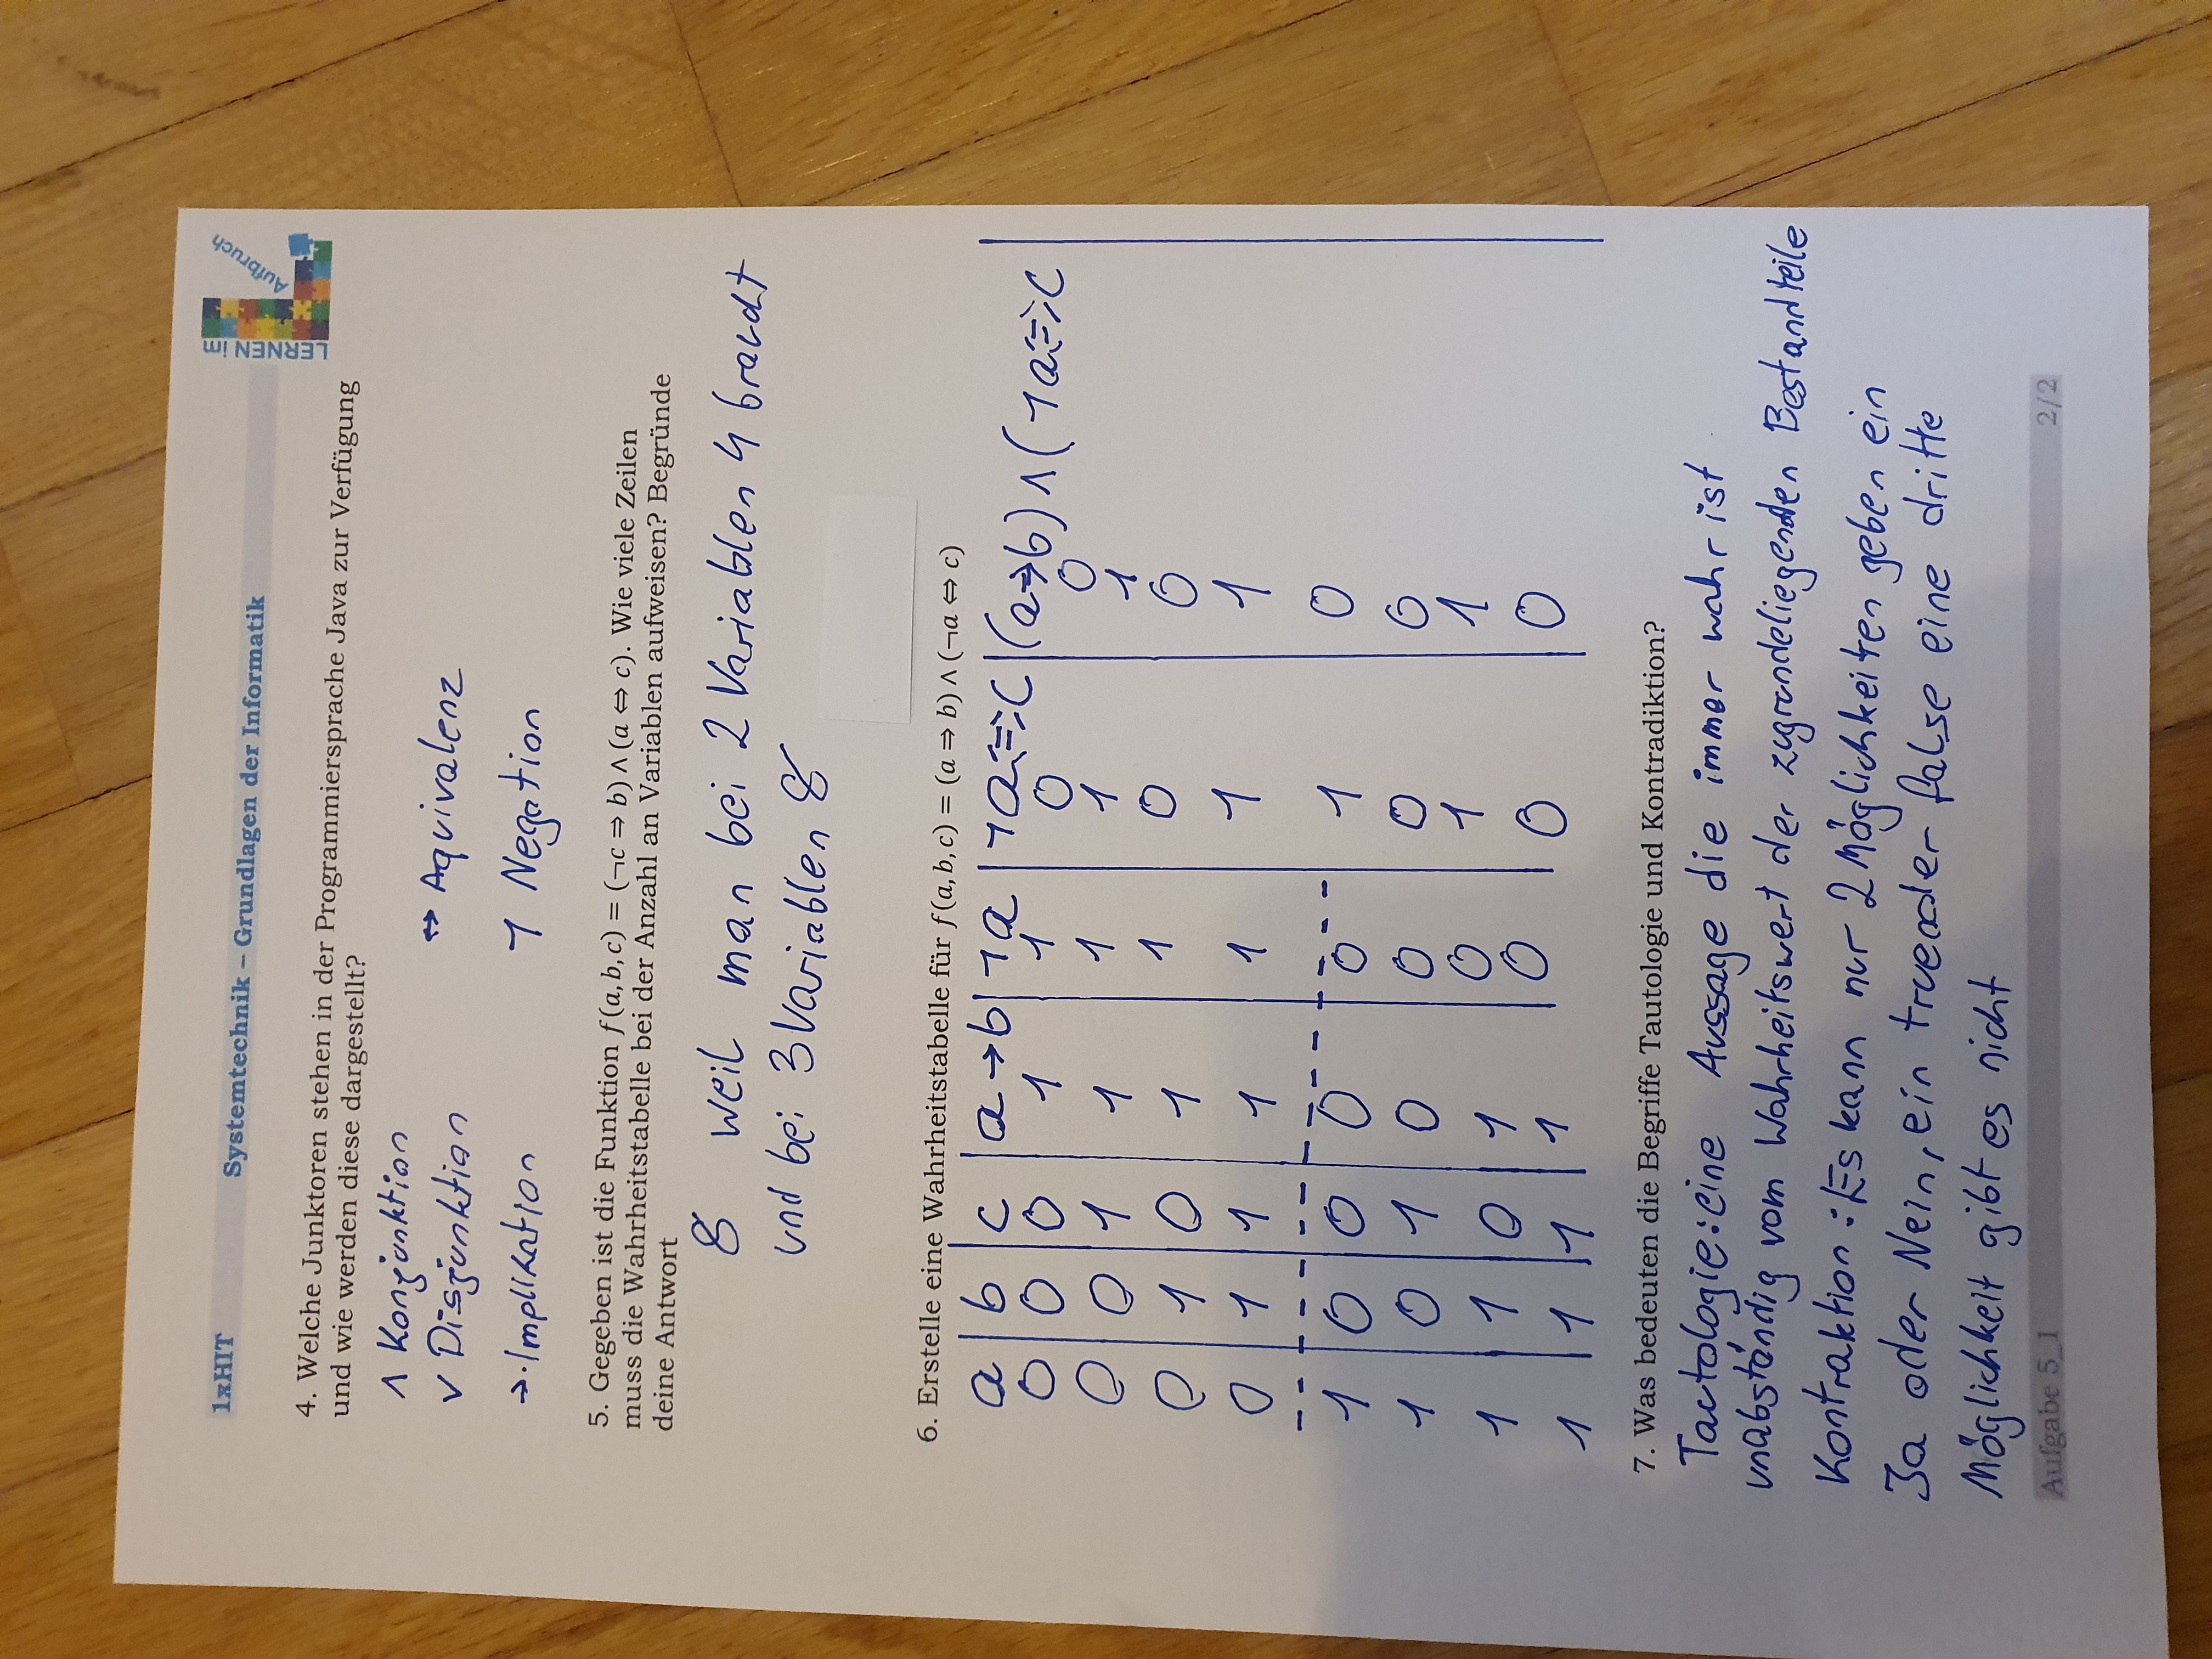 1xHIT
Systemtechnik – Grundlagen der Informatik
LERNEN im
Aufbruch
4. Welche Junktoren stehen in der Programmiersprache Java zur Verfügung
und wie werden diese dargestellt?
∧ Konjunktion
∨ Disjunktion
↔ Aquivalenz
→ Implikation
¬ Negation
5. Gegeben ist die Funktion f(a, b, c) = (¬c ⇒ b) ∧ (a ⇔ c). Wie viele Zeilen
muss die Wahrheitstabelle bei der Anzahl an Variablen aufweisen? Begründe
deine Antwort
8 weil man bei 2 Variablen 4 braucht
und bei 3 Variablen 8
6. Erstelle eine Wahrheitstabelle für f(a, b, c) = (a ⇒ b) ∧ (¬a ⇔ c)
a b c a→b ¬a ¬a⇔c (a→b)∧(¬a⇔c
0 0 0 1 1 0 0
0 0 1 1 1 1 1
0 1 0 1 1 0 0
0 1 1 1 1 1 1
1 0 0 0 0 1 0
1 0 1 0 0 0 0
1 1 0 1 0 1 1
1 1 1 1 0 0 0
7. Was bedeuten die Begriffe Tautologie und Kontradiktion?
Tautologie: eine Aussage die immer wahr ist
unabständig vom Wahrheitswert der zugrundeliegenden Bestandteile
Kontraktion: Es kann nur 2 Möglichkeiten geben ein
Ja oder Nein, ein true oder false eine dritte
Möglichkeit gibt es nicht
Aufgabe 5_1
2/2